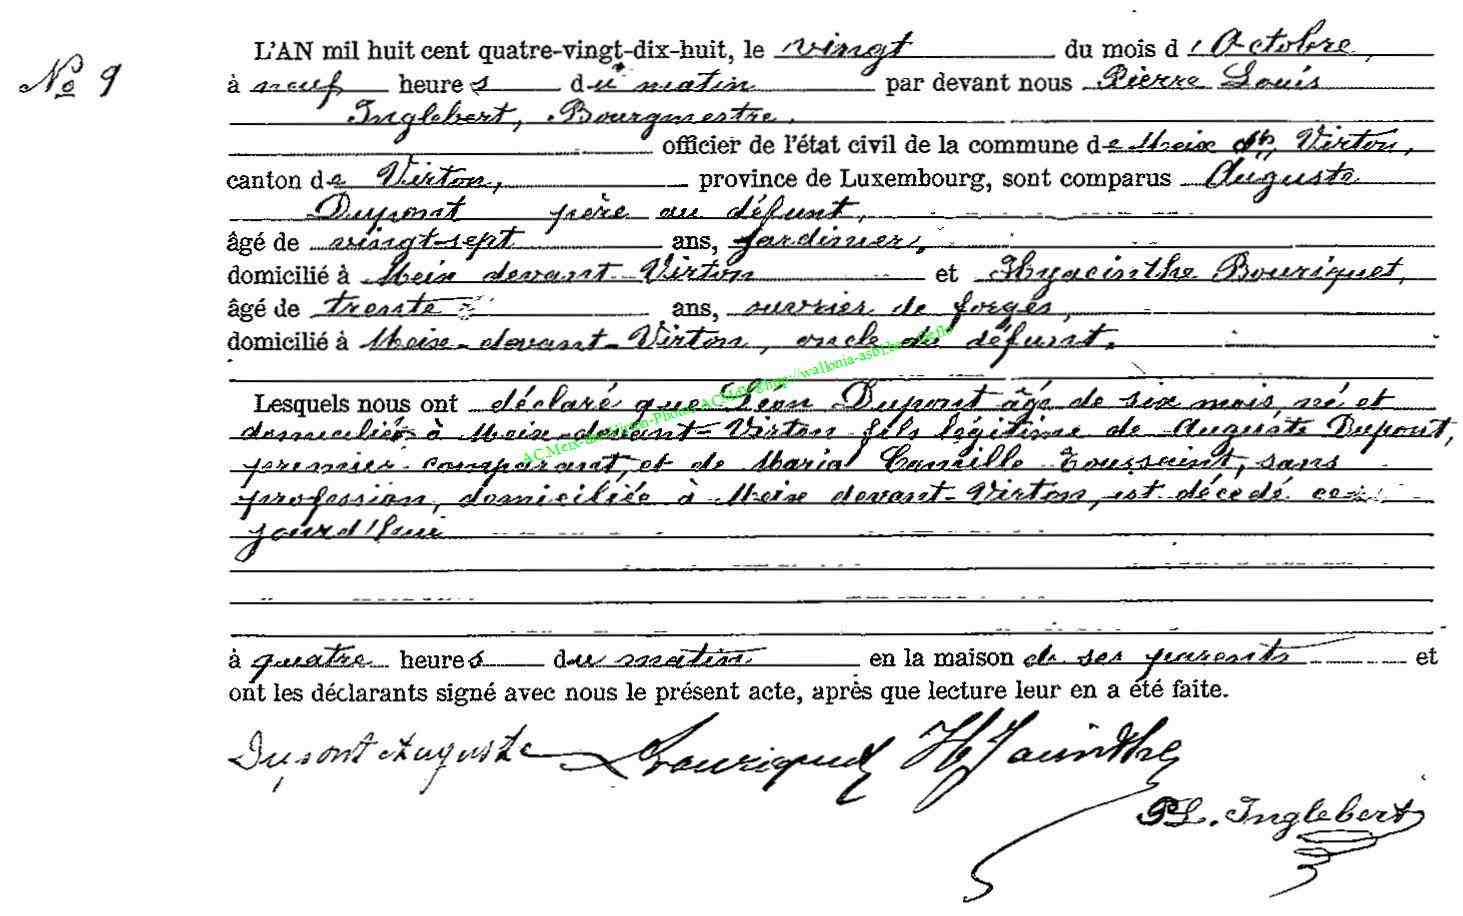 No 9
L'AN mil huit cent quatre-vingt-dix-huit, le vingt du mois d'Octobre,
à neuf heures du matin par devant nous Pierre Louis
Inglebert, Bourgmestre,
officier de l'état civil de la commune de Meix dt Virton,
canton de Virton, province de Luxembourg, sont comparus Auguste
Dupont père au défunt,
âgé de vingt-sept ans, jardinier,
domicilié à Meix devant Virton et Hyacinthe Bouriquet,
âgé de trente ans, ouvrier de forges,
domicilié à Meix-devant-Virton, oncle du défunt.
Lesquels nous ont déclaré que Léon Dupont âgé de six mois, né et
domicilié à Meix-devant-Virton fils légitime de Auguste Dupont,
premier comparant, et de Maria Camille Toussaint, sans
profession, domiciliée à Meix devant-Virton, est décédé ce
jourd'hui
à quatre heures du matin en la maison de ses parents et
ont les déclarants signé avec nous le présent acte, après que lecture leur en a été faite.
Dupont Auguste Bouriquet Hyacinthe
PL. Inglebert